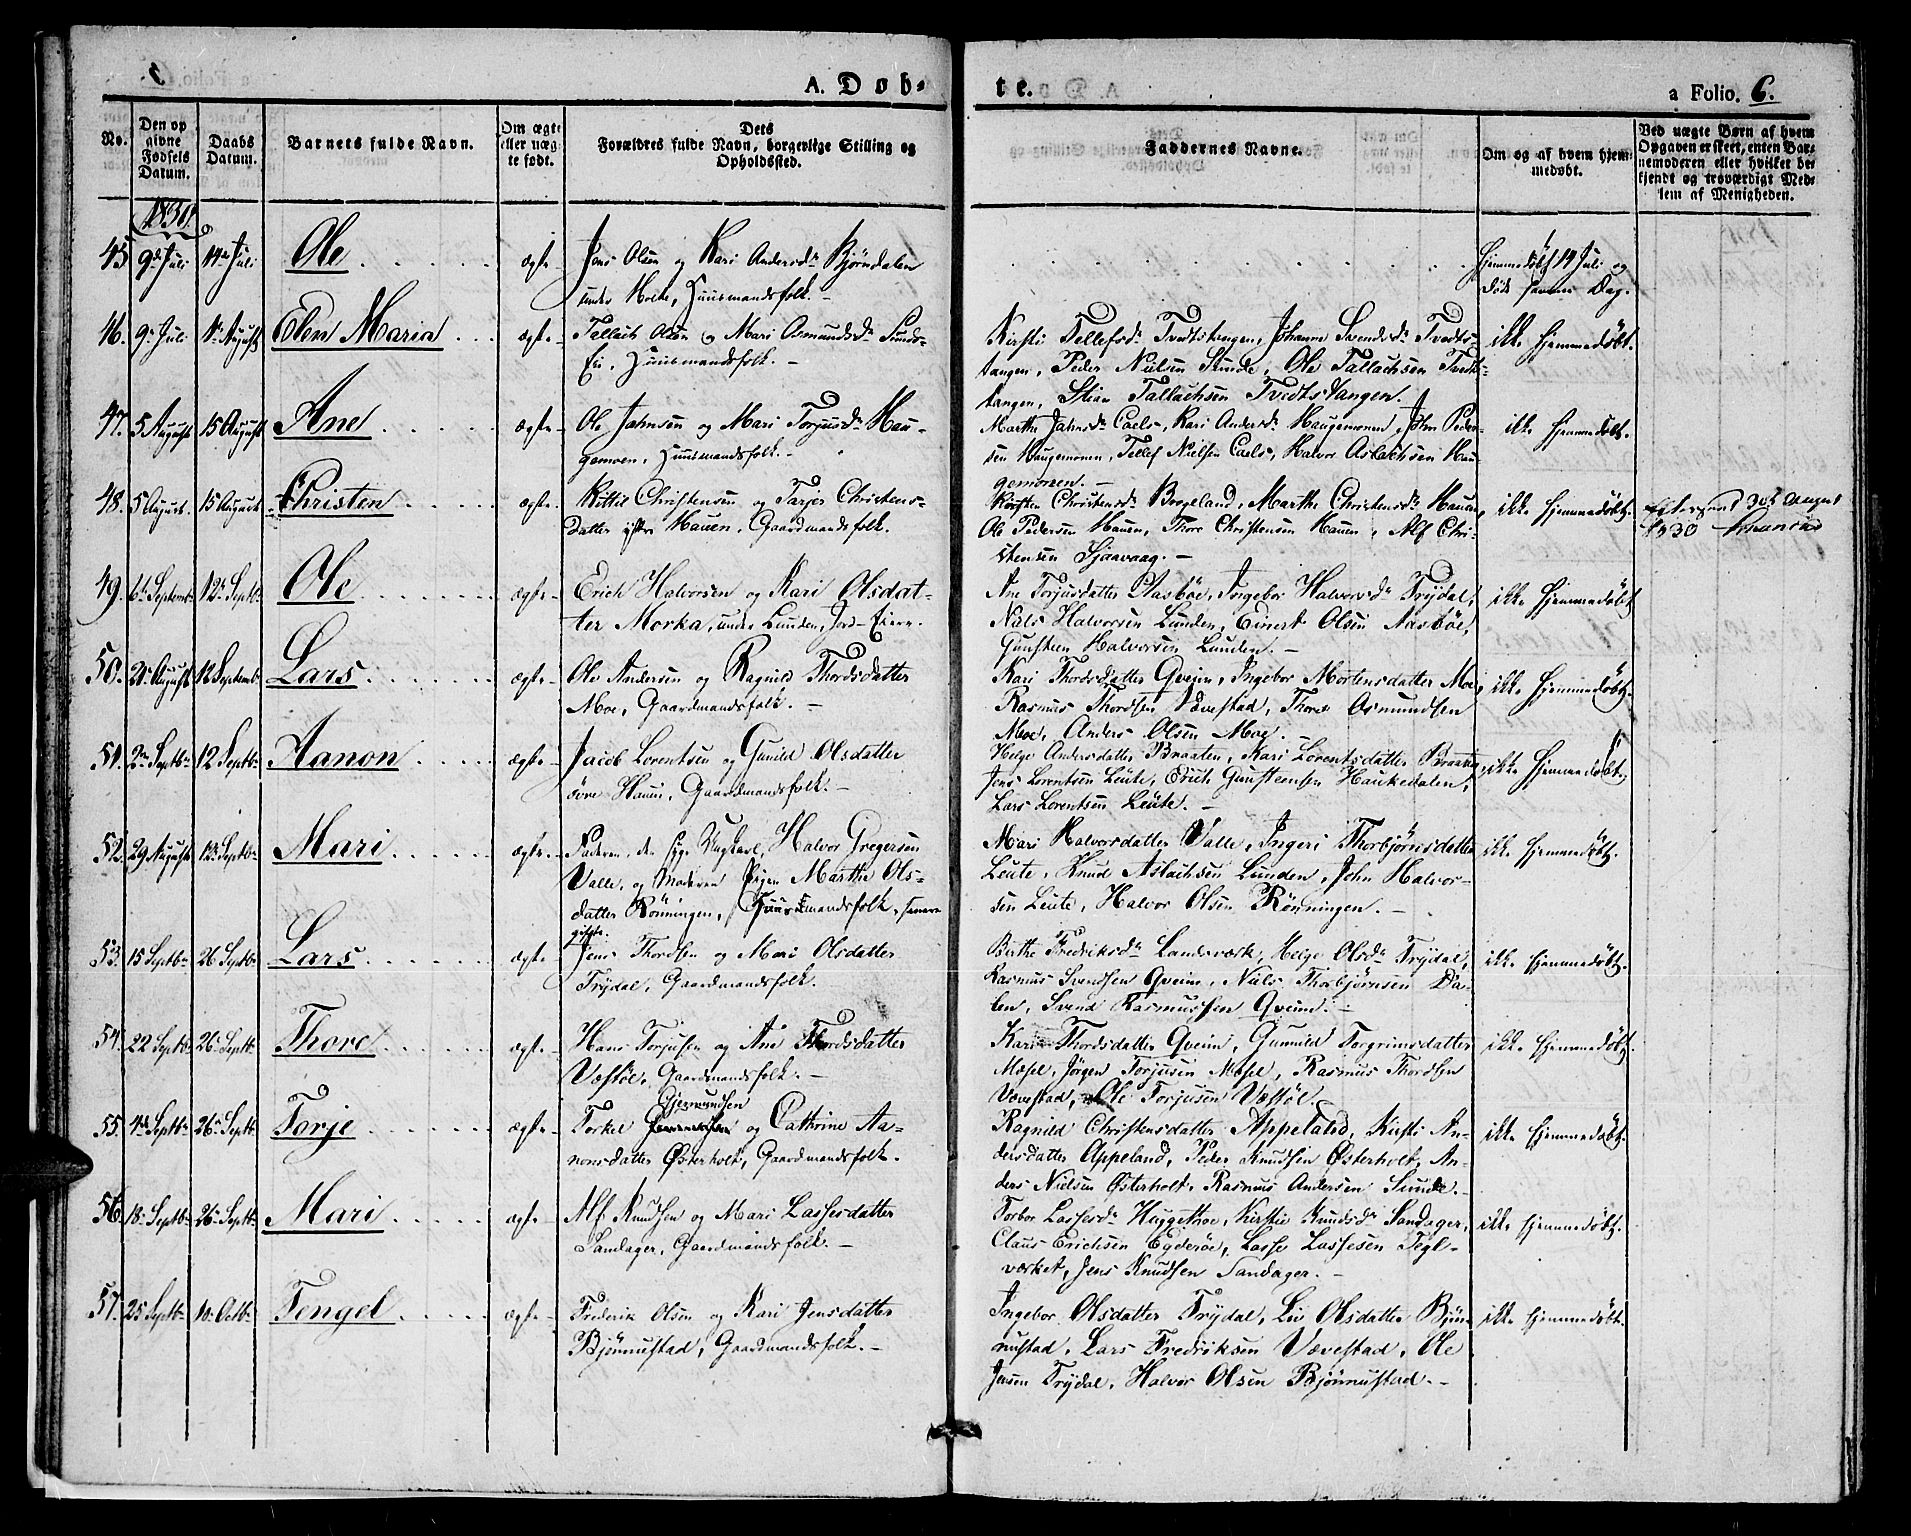 A. Døb-
te.
a Folio. 6.
No.
Den op
givne
Fødsels
Datum.
Daabs
Datum.
Barnets fulde Navn.
Om ægte
eller uæg
te født.
Dets
Forældres fulde Navn, borgerlige Stilling og
Opholdssted.
Faddernes Navne.
Om og af hvem hjem-
medøbt.
Ved uægte Børn af hvem
Opgaven er skeet, enten Bar-
nemoderen eller hvilket be-
kjendt og troværdigt Med-
lem af Menigheden.
1830.
45 9de Juli 14de Juli Ole ægte Jens Olsen og Kari Andersdr Bjørndalen
under Holte, Huusmandsfolk. –
Hjemmedøbt 14 Juli og
døde samme Dag.
46. 9de Juli 1ste August Elen Maria ægte Tallach Olsen og Mari Osmundsdr Sunds-
Ei, Huusmandsfolk. –
Kirsti Tellefsdr Tvedtstangen, Johanne Svendsdr Tvedts- ikke hjemmedøbt.
tangen, Peder Nielsen Sunde, Ole Tallachsen Tvedts-
tangen, Stian Tallachsen Tvedtstangen.
47. 5 August 15 August Ane ægte Ole Jahnsen og Mari Torjusdr Hau-
gemoen, Huusmandsfolk. –
Marthe Jahnsdr Caels, Kari Andersdr Haugemoen, John Peder- ikke hjemmedøbt.
sen Haugemoen, Tellef Nielsen Caels, Halvor Aslachsen Hau-
gemoen. –
48. 5 August 15 August Christen ægte Kittil Christensen og Tarjer Christens-
datter øfre Hauen, Gaardmandsfolk.
Kirsten Christensdr Brogeland, Marthe Christensdr Hauen, ikke hjemmedøbt.
Ole Pedersen Hauen, Thore Christensen Hauen, Alf Chri-
stensen Sjaavaag. –
August
1830
49. 6te Septemb. 12te Septb. Ole ægte Erich Halvorsen og Kari Olsdat-
ter Morka, under Lunden, Jord-Eiere.
Ane Torjusdatter Aasbøe, Ingebor Halvorsdr Trydal, ikke hjemmedøbt
Niels Halvorsen Lunden, Einert Olsen Aasbøe,
Gunsteen Halvorsen Lunden. –
50. 20 August 12 Septemb. Lars ægte Ole Andersen og Ragnild Thordsdatter
Moe, Gaardmandsfolk. –
Kari Thordsdatter Qveim, Ingebor Mortensdatter Moe, ikke hjemmedøbt.
Rasmus Thordsen Vævestad, Thore Osmundsen
Moe, Anders Olsen Moe. –
51. 2den Septb. 12 Septb. Aanon ægte Jacob Lorentsen og Gunild Olsdatter
øvre Hauen, Gaardmandsfolk. –
Helge Andersdatter Braaten, Kari Lorentsdatter Braaten, ikke hjemmedøbt.
Jens Lorentsen Leute, Erich Gunsteensen Haukedalen,
Lars Lorentsen Leute. –
52. 29 August 12te Septb. Mari ægte Faderen, den Ungkarl, Halvor Gregersen
Valle, og Moderen Pigen Marthe Ols-
datter Rønningen, Gaardmandsfolk, senere
gifte.
Mari Halvorsdatter Valle, Ingeri Thorbjørnsdatter ikke hjemmedøbt.
Leute, Knud Aslachsen Lunden, John Halvor-
sen Leute, Halvor Olsen Rønningen. –
53. 15 Septb. 26 Septb. Lars ægte Jens Thordsen og Mari Olsdatter
Trydal, Gaardmandsfolk.
Birthe Fredriksdr Landeværk, Helge Olsdr Trydal, ikke hjemmedøbt.
Rasmus Svendsen Qveim, Niels Thorbjørnsen Da-
len, Svend Rasmussen Qveim. –
54. 22 Septb. 26 Septb. Thore ægte Hans Torjusen og Ane Thordsdatter
Væstøl, Gaardmandsfolk. –
Kari Thordsdatter Qveim, Gunnild Torgrimsdatter ikke hjemmedøbt.
Møsel, Jørgen Torjusen Møsel, Rasmus Thordsen
Vævestad, Ole Torjusen Væstøl.
55. 4de Septb. 26 Septb. Torje ægte Torkel Gjermundsen og Cathrine Aa-
nonsdatter Østerholt, Gaardmandsfolk.
Ragnild Christensdatter Appeland, Kirsti An- ikke hjemmedøbt.
dersdatter Appeland, Peder Knudsen Østerholt, An-
ders Nielsen Østerholt, Rasmus Andersen Sunde. –
56. 18 Septb. 26 Septb. Mari ægte Alf Knudsen og Mari Lassesdatter
Sandager, Gaardmandsfolk. –
Torbor Lassesdr Huggethoe, Kirstie Knudsdr Sandager, ikke hjemmedøbt.
Claus Erichsen Eyderøe, Lasse Lassesen Tegl-
værket, Jens Knudsen Sandager. –
57. 25 Septb. 10 Octb. Tengel ægte Frederik Olsen og Kari Jensdatter
Bjønnustad, Gaardmandsfolk. –
Ingebor Olsdatter Trydal, Liv Olsdatter Bjøn- ikke hjemmedøbt.
nustad, Lars Fredriksen Vævestad, Ole
Jensen Trydal, Halvor Olsen Bjønnustad. –